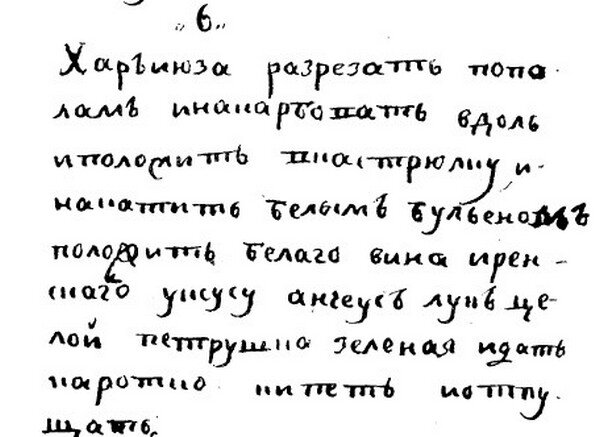 „6„
Харъиюза разрезать попа-
ламъ инакарбовать вдоль
иположить вкастрюлку и
накатить белымъ бульеномъ
положить белаго вина ирен-
скаго уксусу анчеусъ лукъ це-
лой петрушка зеленая идать
каротко кипеть иотпу-
щать.